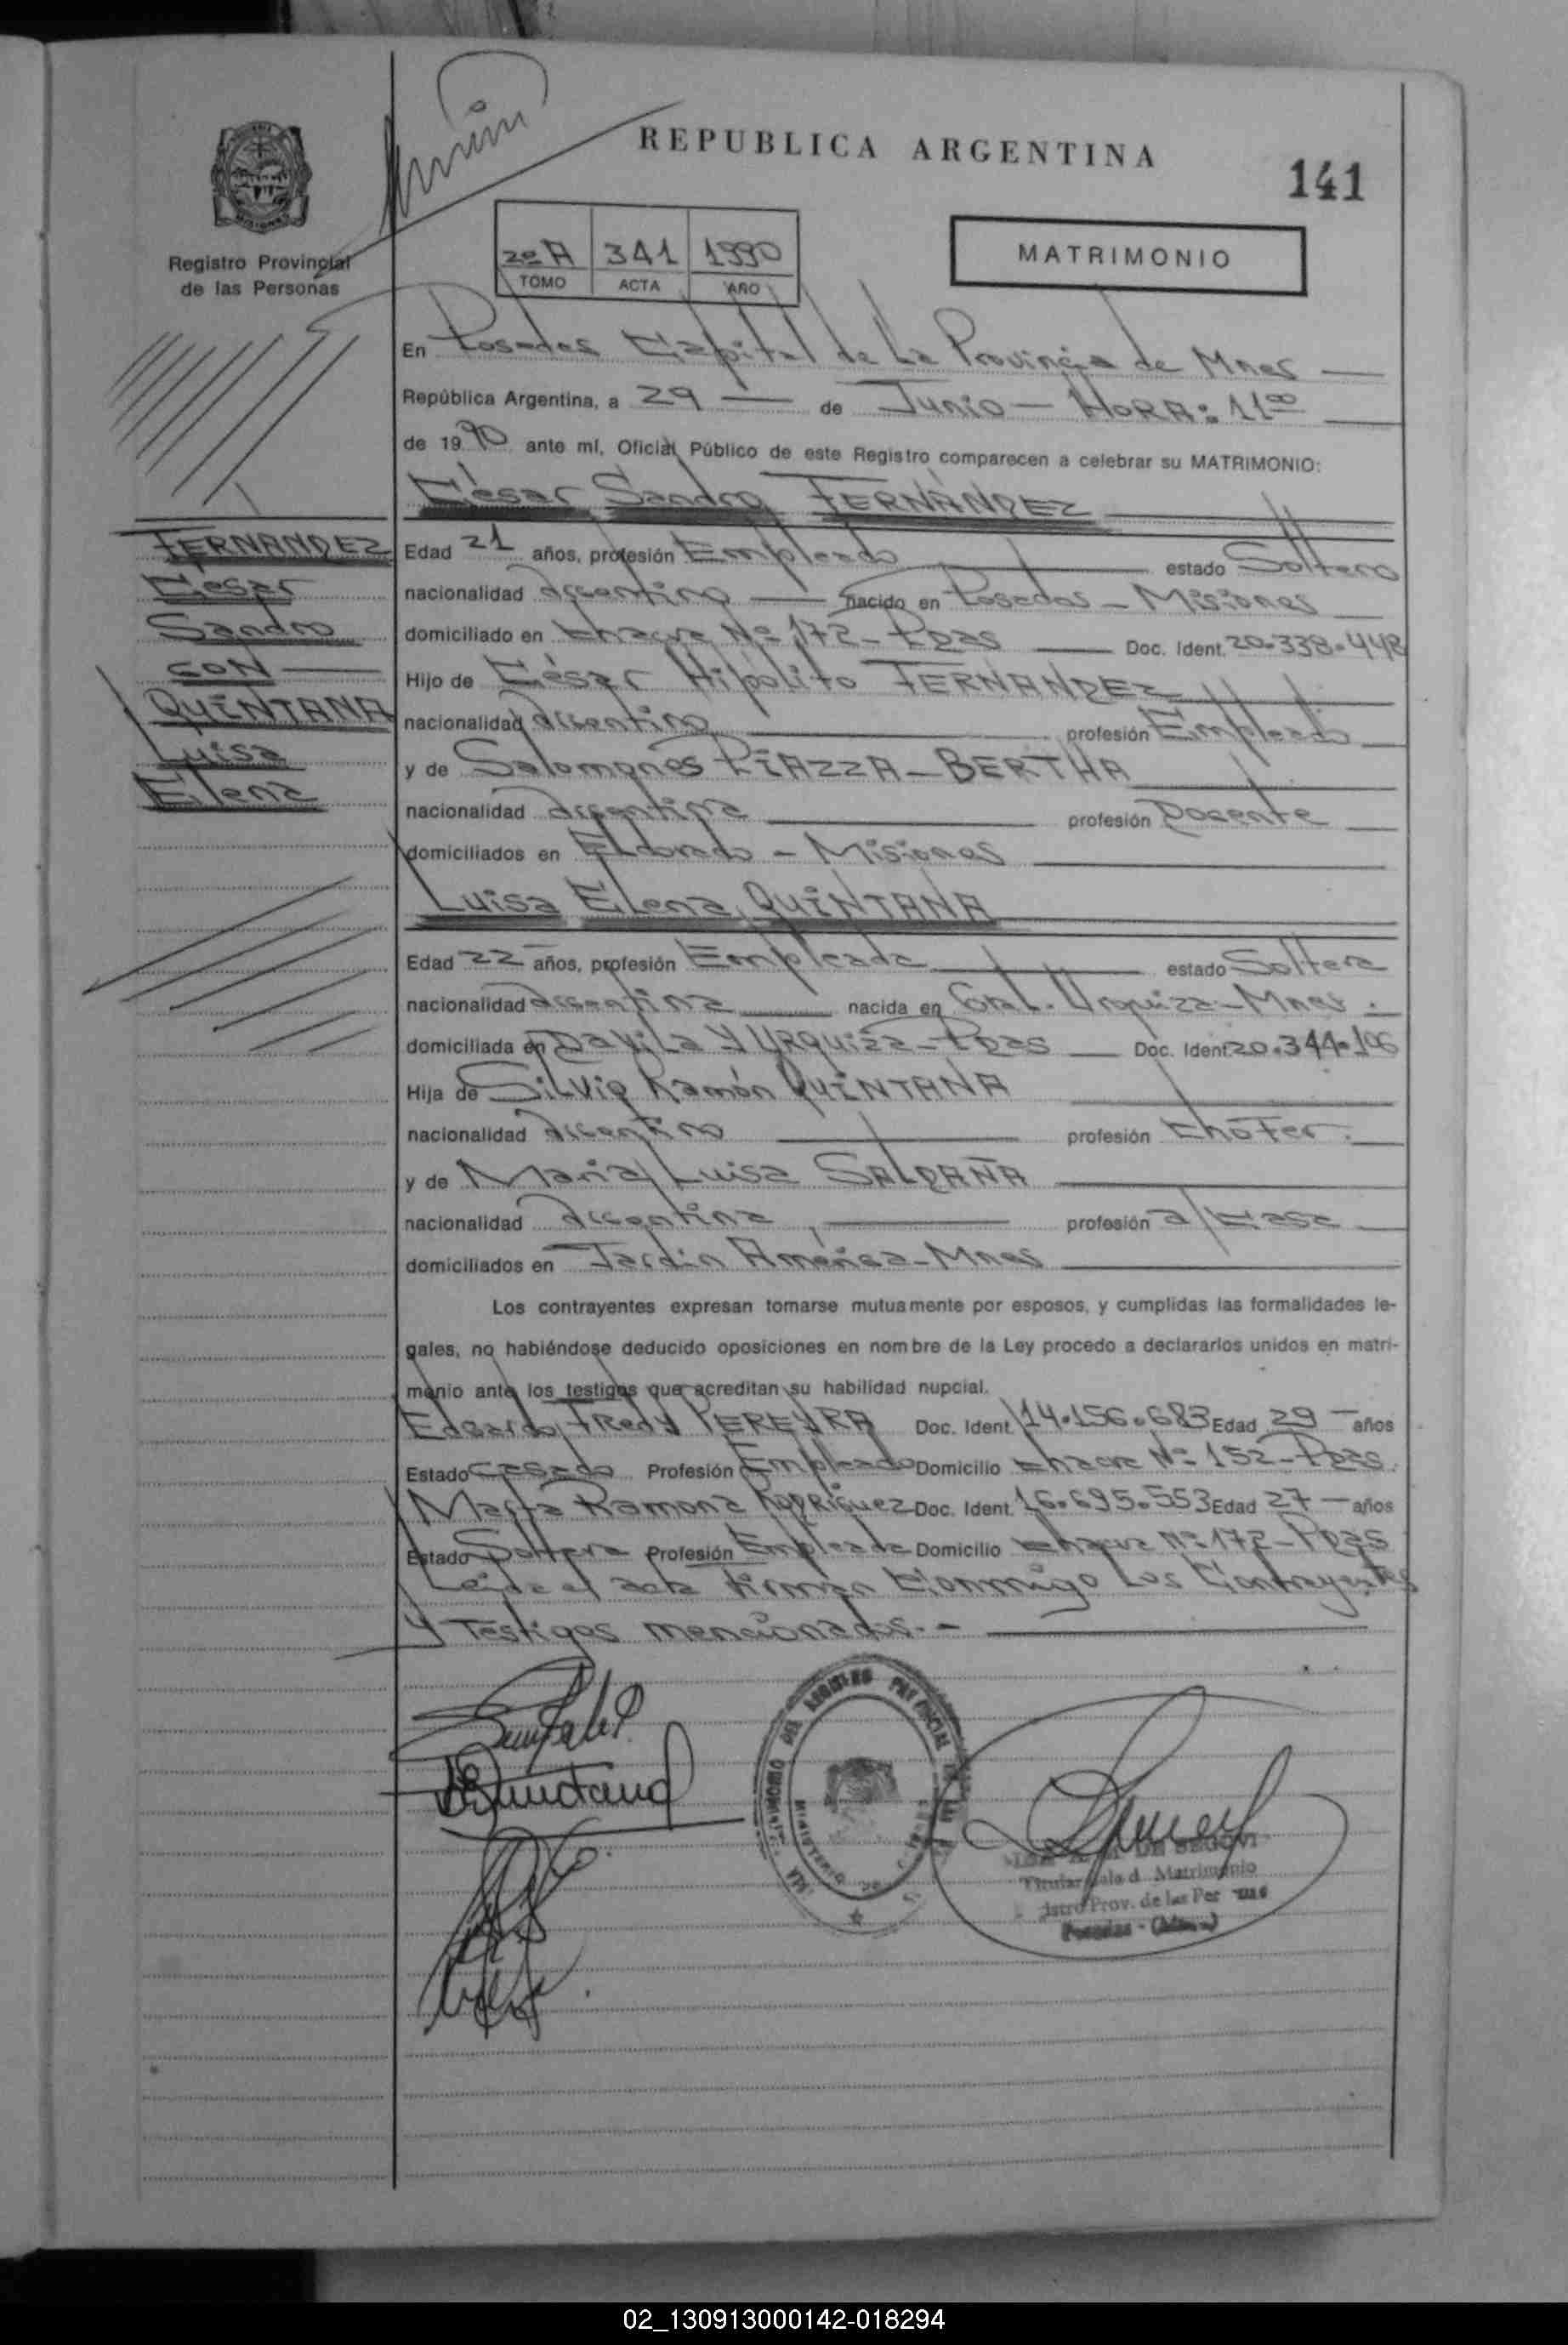 REPUBLICA ARGENTINA
141
Registro Provincial
de las Personas
2º A 341 1990
TOMO ACTA AÑO
MATRIMONIO
En Posadas Capital de La Provincia de Mnes
República Argentina, a 29 de Junio - HORA: 11 00
de 1990 ante mí, Oficial Público de este Registro comparecen a celebrar su MATRIMONIO:
César Sandro FERNANDEZ
FERNANDEZ
César
Sandro
CON
QUINTANA
Luisa
Elena
Edad 21 años, profesión Empleado estado Soltero
nacionalidad Argentino nacido en Posadas - Misiones
domiciliado en Chacra Nº 172 - Pdas Doc. Ident. 20.338.448
Hijo de César Hipólito FERNANDEZ
nacionalidad Argentino profesión Empleado
y de PIAZZA - BERTHA
nacionalidad Argentina profesión Docente
domiciliados en Eldorado - Misiones
Luisa Elena QUINTANA
Edad 22 años, profesión Empleada estado Soltera
nacionalidad Argentina nacida en Gral. Urquiza - Mnes.
domiciliada en Davila y Urquiza - Pdas Doc. Ident. 20.344.106
Hija de Silvio Ramón QUINTANA
nacionalidad Argentino profesión Chofer.
y de Maria Luisa SALDAÑA
nacionalidad Argentina profesión a/casa
domiciliados en Jardín América - Mnes
Los contrayentes expresan tomarse mutuamente por esposos, y cumplidas las formalidades le-
gales, no habiéndose deducido oposiciones en nombre de la Ley procedo a declararlos unidos en matri-
monio ante los testigos que acreditan su habilidad nupcial.
Edgardo Fredy PEREYRA Doc. Ident. 14.156.683 Edad 29 años
Estado Casado Profesión Empleado Domicilio Chacra Nº 152 - Pdas.
Marta Ramona RODRIGUEZ Doc. Ident. 16.695.553 Edad 27 años
Estado Soltera Profesión Empleada Domicilio Chacra Nº 172 - Pdas
Leída el acta firman Conmigo Los Contrayentes
y Testigos mencionados.-
Quintana
DE SEGOVI
Titular Sala d Matrimonio
Prov. de las Per
Posadas
02_130913000142-018294